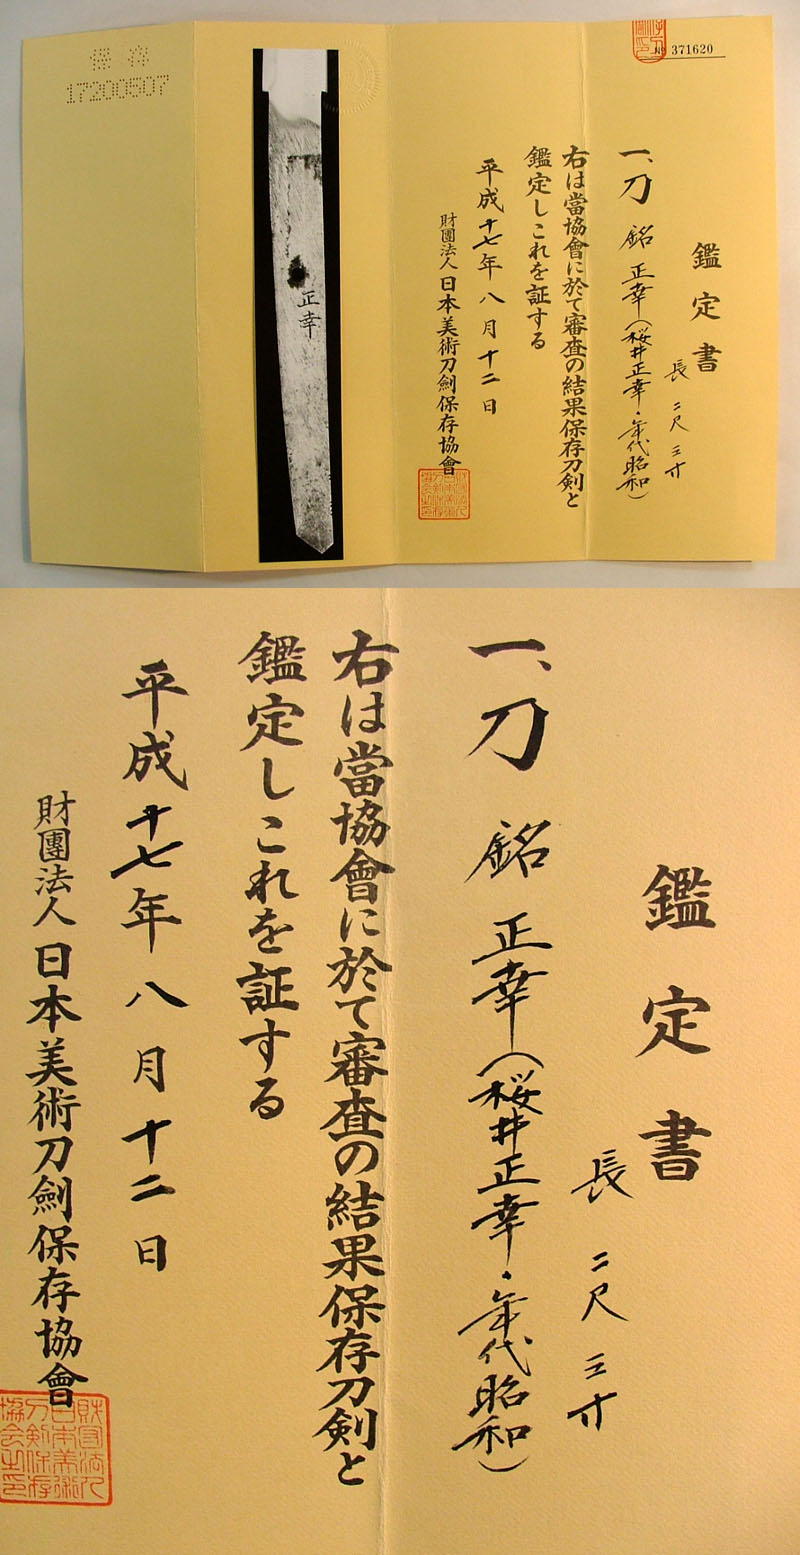 保存
17200507
正幸
№ 371620
鑑定書
長 二尺三寸
一、刀 銘 正幸(桜井正幸・年代昭和)
右は當協會に於て審査の結果保存刀剣と
鑑定しこれを証する
平成十七年八月十二日
財團法人 日本美術刀劍保存協會
鑑定書
長 二尺三寸
一、刀 銘 正幸(桜井正幸・年代昭和)
右は當協會に於て審査の結果保存刀剣と
鑑定しこれを証する
平成十七年八月十二日
財團法人 日本美術刀劍保存協會